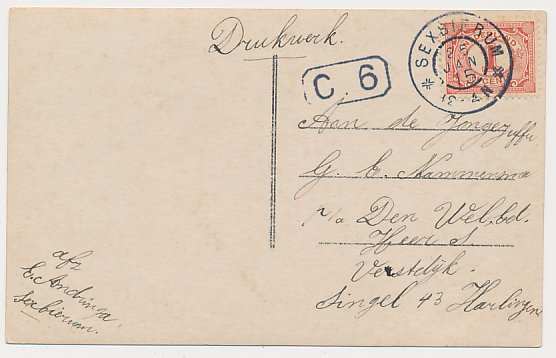 Drukwerk.
SEXBIERUM
26
JAN
12-4N
1
CENT
C 6
Aan de Jongejuffr
G. E. Kammensma
p/a Den Wel.Ed.
Heer S.
Verstdijk.
Singel 43 Harlingen
afz
E. Andringa.
Sexbierum.